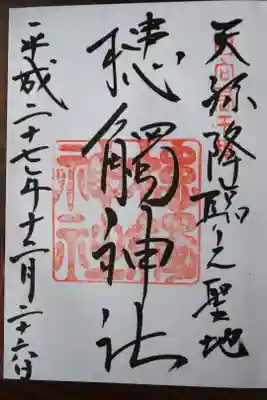 天孫降臨之聖地
槵觸神社
平成二十七年十二月二十六日